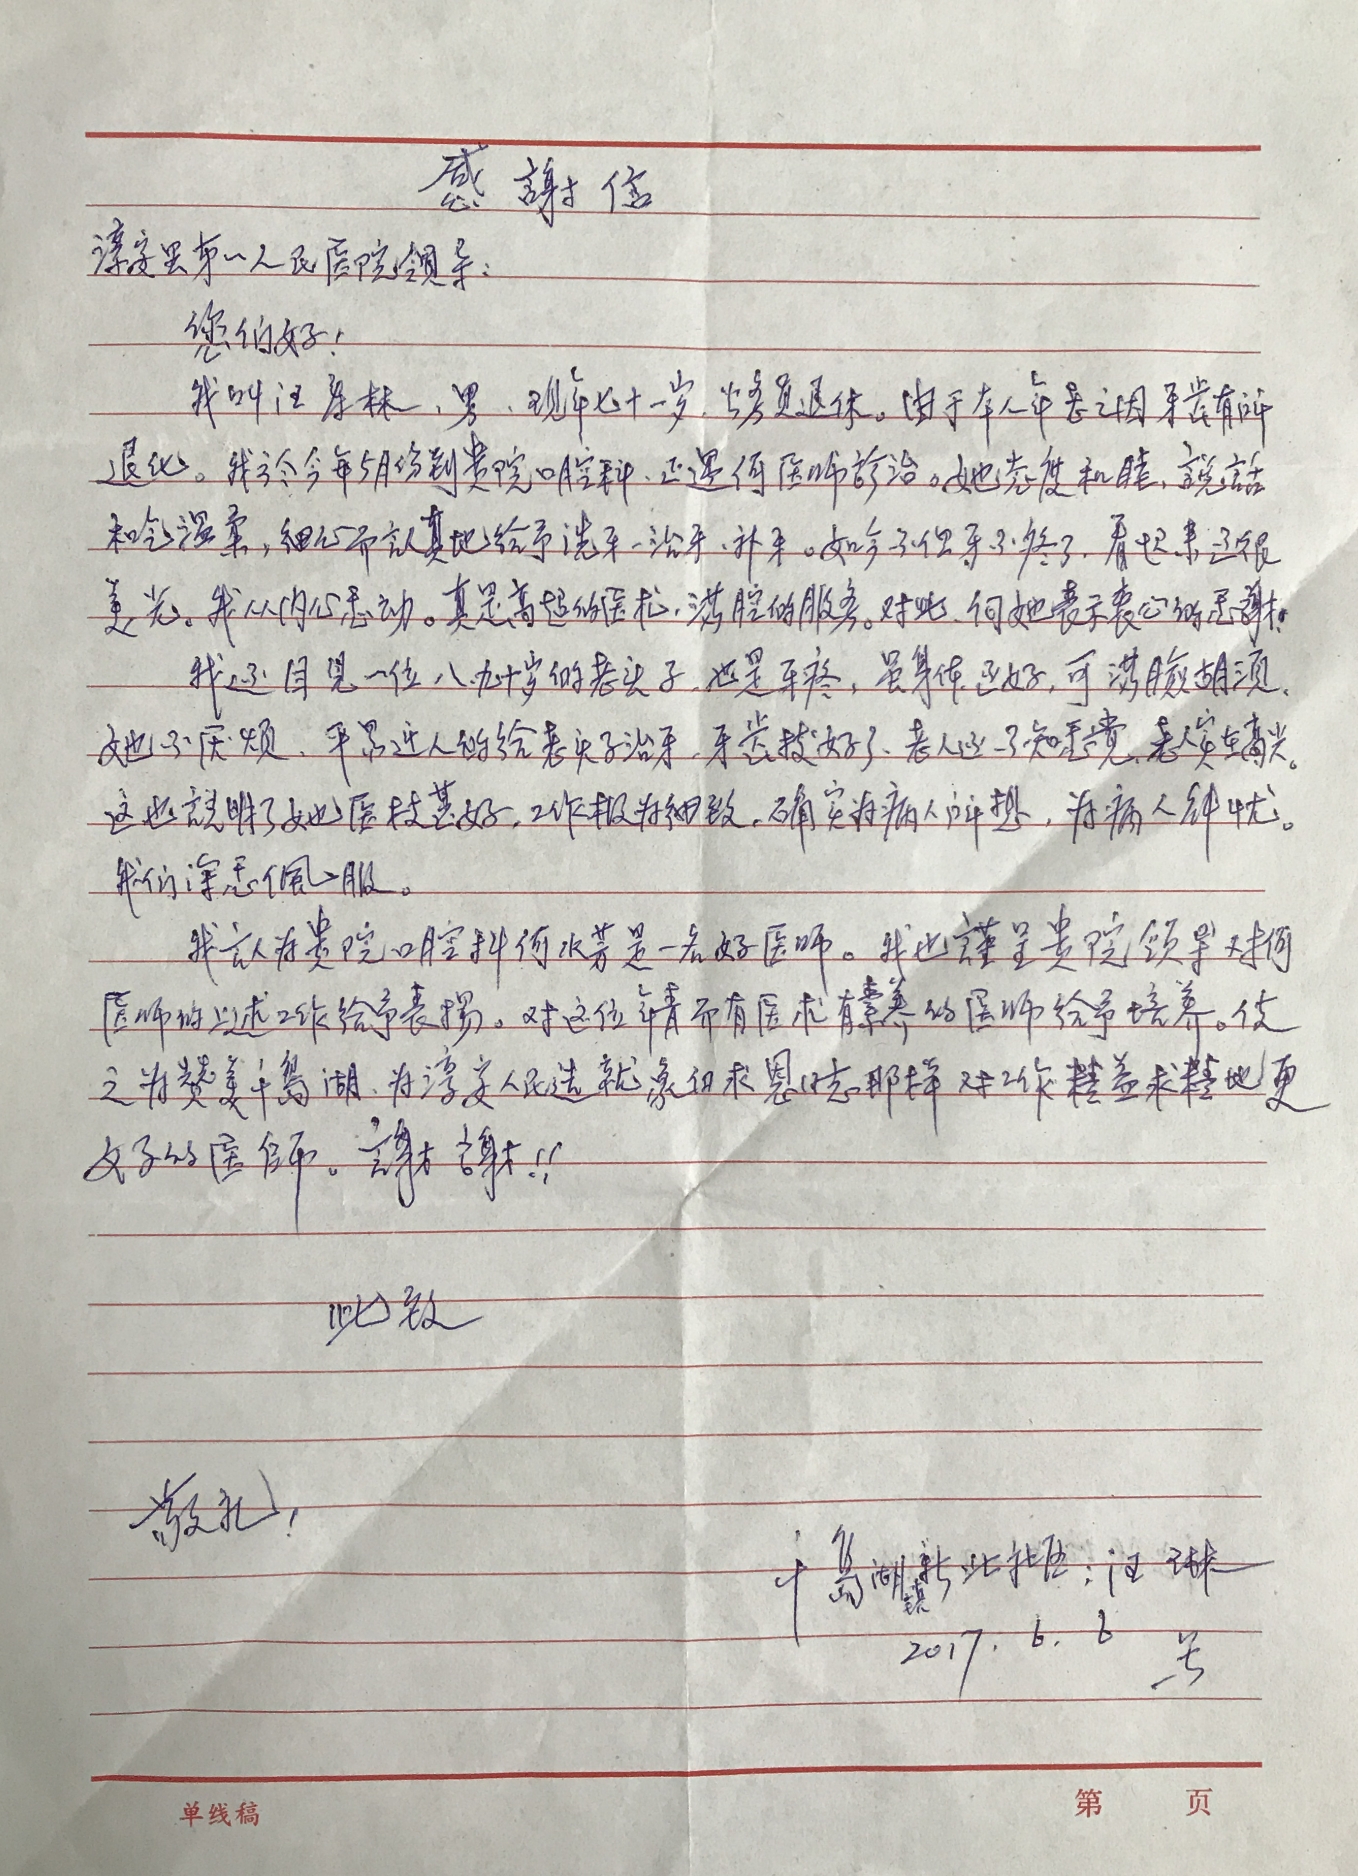 感謝信
淳安县第一人民医院领导:
您们好!
我叫汪 林、男、现年七十一岁、公务员退休。由于本人年老之因牙齿有所
退化。我于今年5月份到贵院口腔科、正遇何医师診治。她态度和睦、説話
和气温柔,细心而認真地给予洗牙、治牙、补牙。如今不但牙不疼了、看起来还很
美光。我从内心感动。真是高超的医术、满腔的服务。对此、向她表示衷心的感謝!
我还目見一位八九十岁的老头子、也是牙疼,虽身体还好,可满臉胡须、
她也不厌烦、平易近人的给老头子治牙、牙齿拔好了、老人还不知感觉、老人实在高兴。
这也説明了她医技甚好,工作极为细致。确实为病人所想,为病人解忧。
我们深感佩服。
我認为贵院口腔科何水芳是一名好医师。我也謹呈贵院领导对何
医师的上述工作给予表揚。对这位年青而有医术有素养的医师给予培养。使
之为赞美千島湖、为淳安人民造就象白求恩同志那样对工作精益求精地更
好的医师。謝謝!!
此致
敬礼!
千島湖镇新北社区:汪琳
2017.6.6
单线稿 第 页